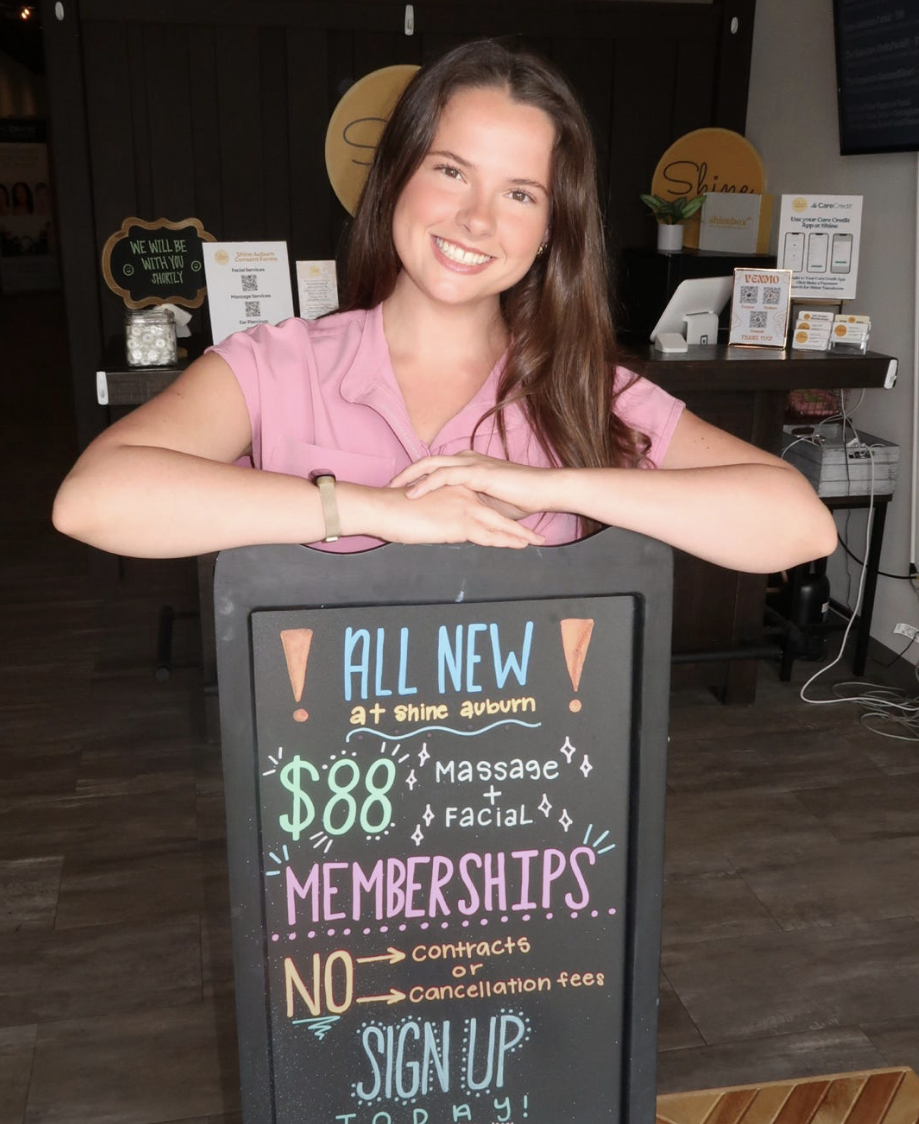 WE WILL BE
WITH YOU
SHORTLY
Shine Auburn
Consent Forms
Facial Services
Massage Services
Shine
CareCredit
Use your Care Credit
App at Shine
VENMO
THANK YOU!
! ALL NEW !
at shine auburn
$88 Massage
+
Facial
MEMBERSHIPS
NO → contracts
or
→ cancellation fees
SIGN UP
TODAY!